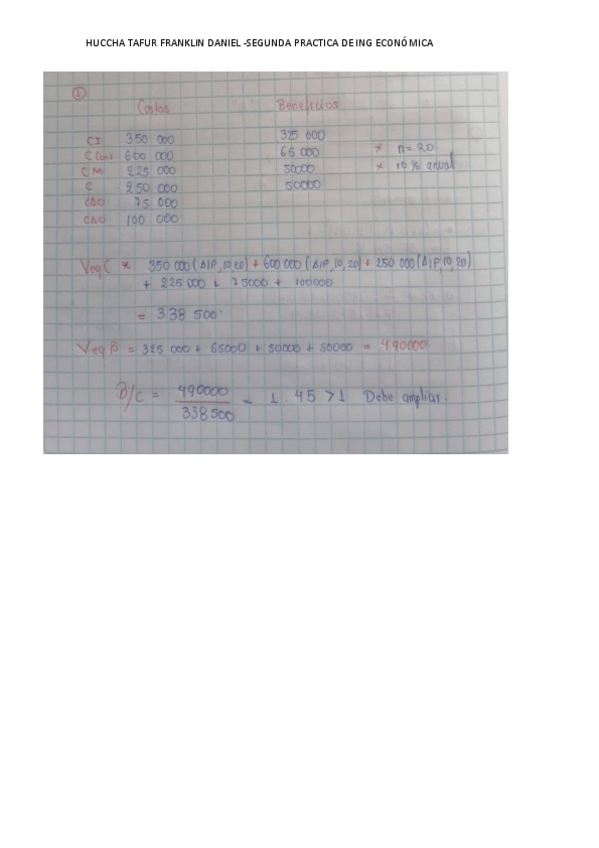 HUCCHA TAFUR FRANKLIN DANIEL -SEGUNDA PRACTICA DE ING ECONÓMICA
①
Costos Beneficios
CI 350 000 325 000 * n=20
C Const 600 000 65 000 * 10% anual
C M 225 000 50000
C 250 000 50000
75 000
100 000
VeqC = 350 000 (A/P,10,20) + 600 000 (A/P,10,20) + 250 000 (A/P,10,20)
+ 225 000 + 75000 + 100000
= 338 500
Veq B = 325 000 + 65000 + 50000 + 50000 = 490000
B/C = 490000 = 1.45 >1 Debe ampliar.
338 500